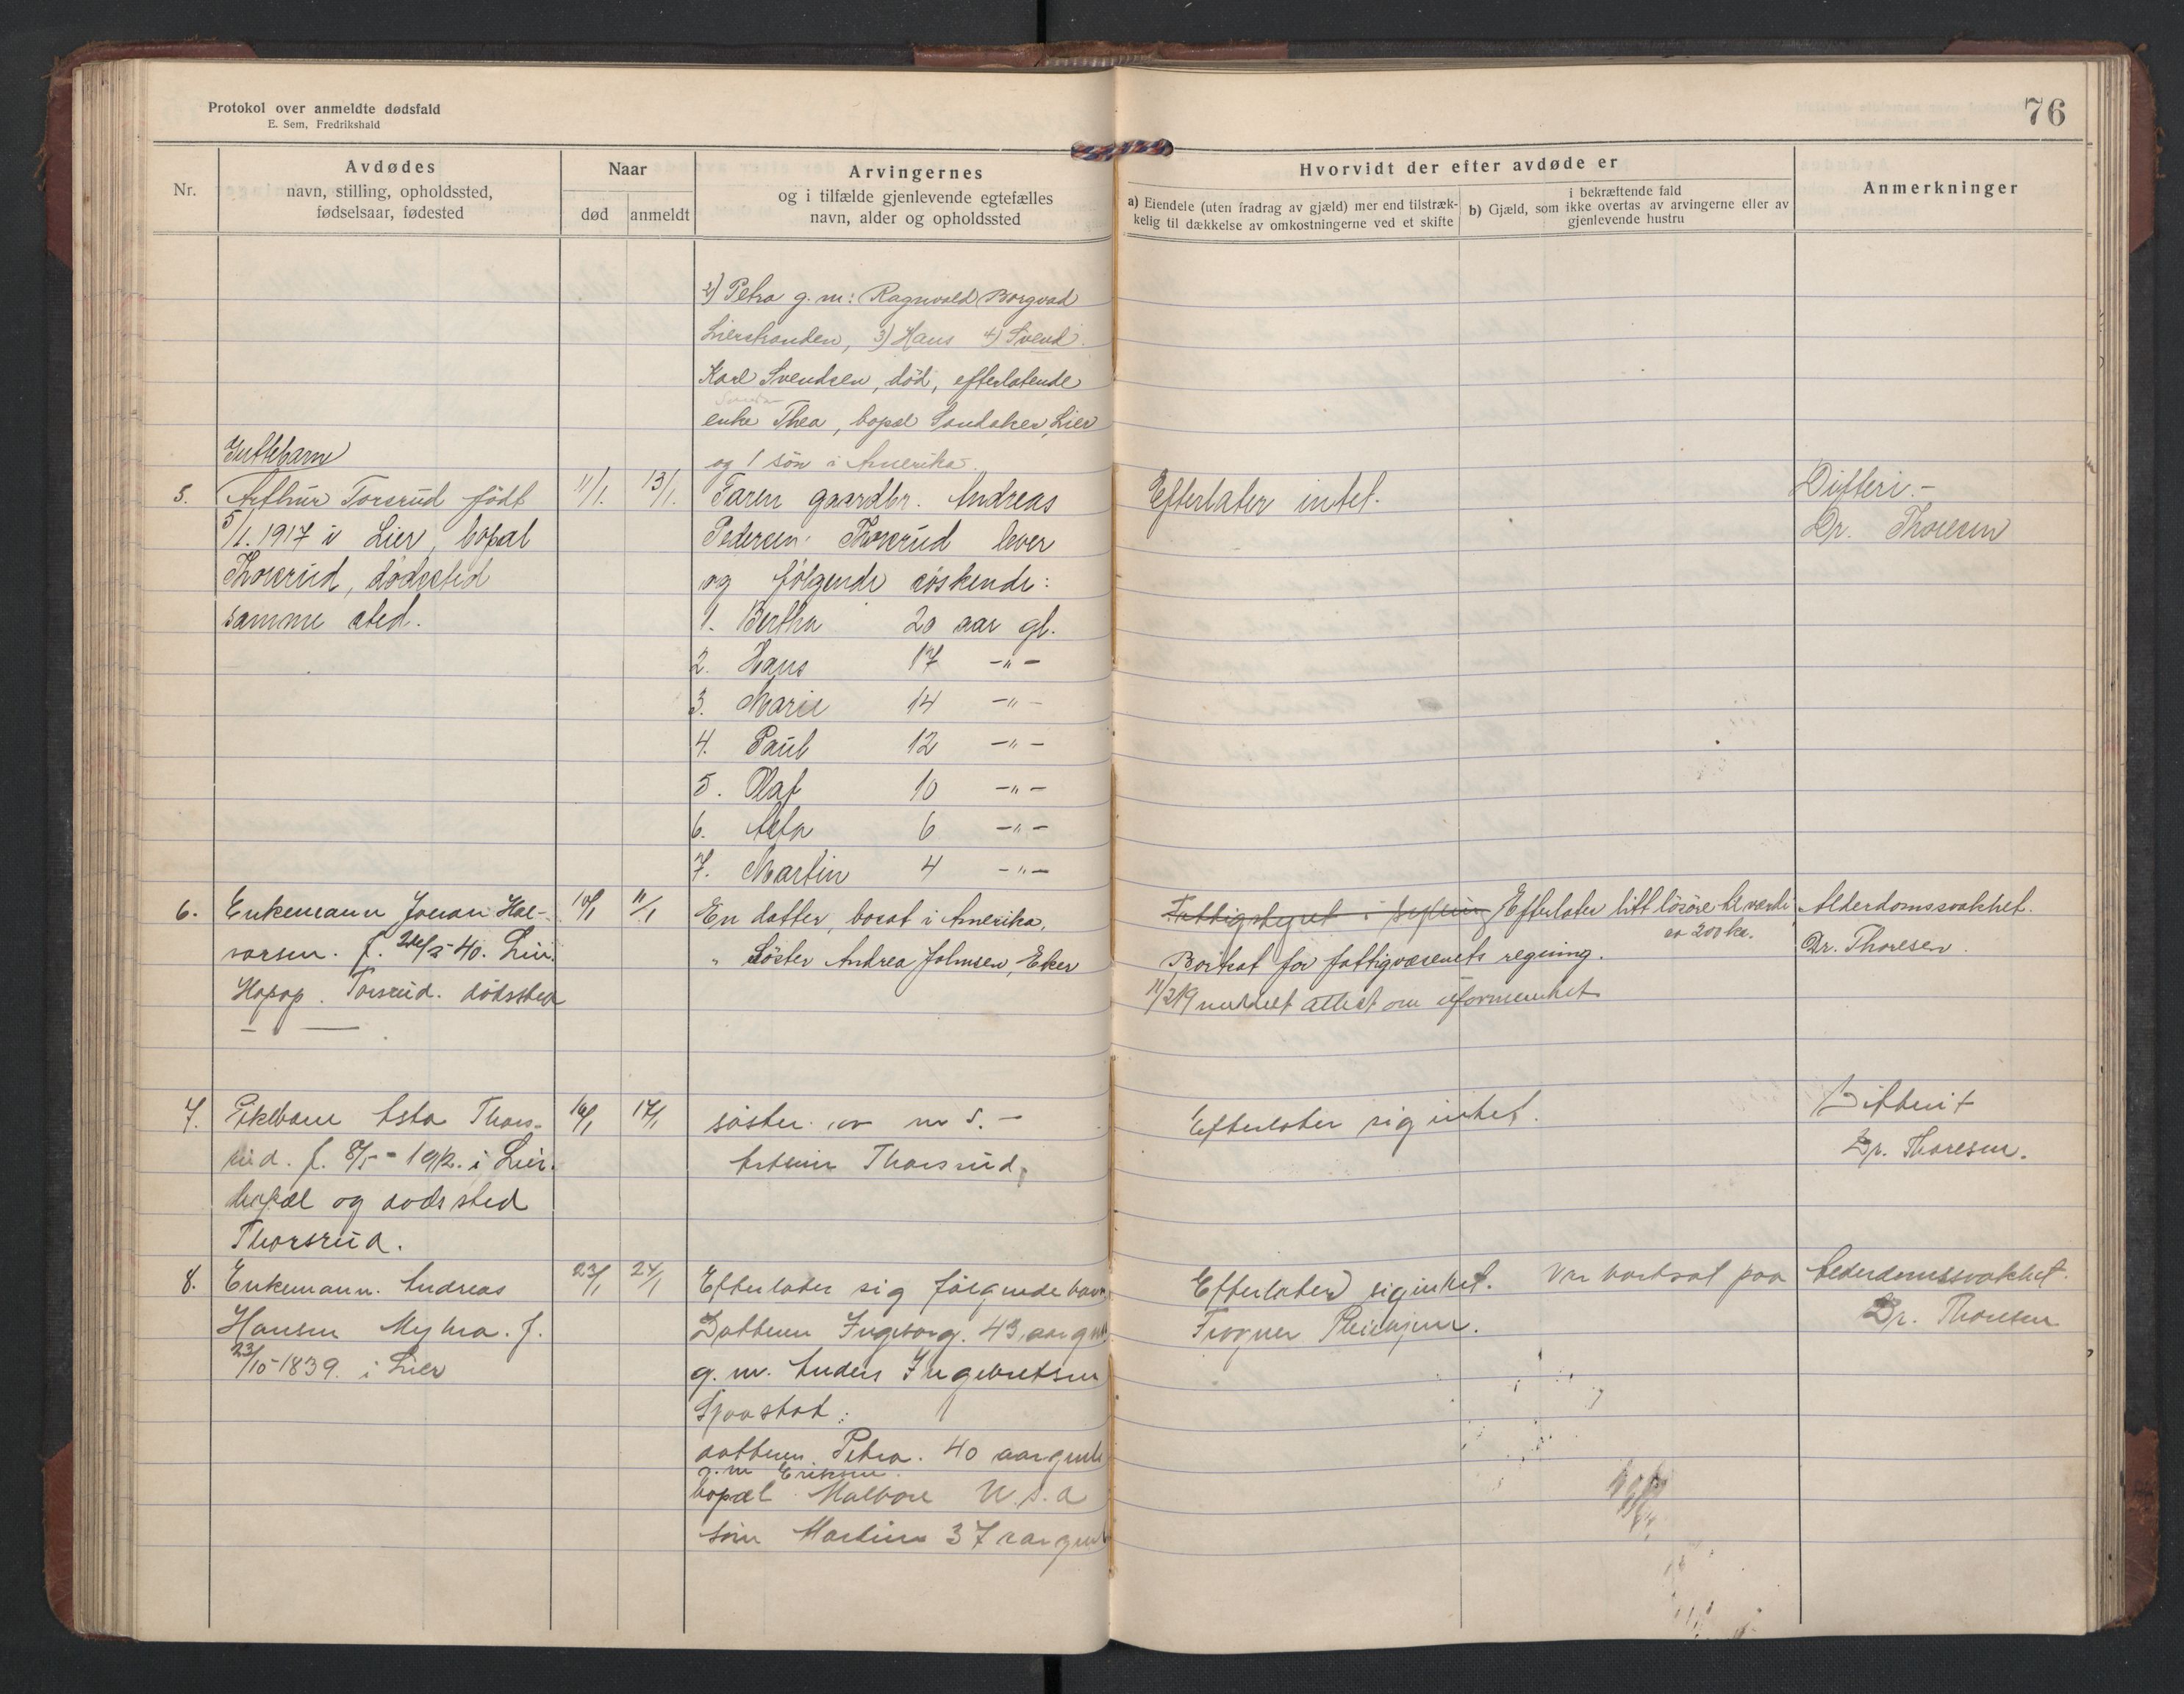 Protokol over anmeldte dødsfald
E. Sem, Fredrikshald
76
Nr.
Avdødes
navn, stilling, opholdssted,
fødselsaar, fødested
Naar
død
anmeldt
Arvingernes
og i tilfælde gjenlevende egtefælles
navn, alder og opholdssted
Hvorvidt der efter avdøde er
a) Eiendele (uten fradrag av gjæld) mer end tilstræk-
kelig til dækkelse av omkostningerne ved et skifte
i bekræftende fald
b) Gjæld, som ikke overtas av arvingerne eller av
gjenlevende hustru
Anmerkninger
2) Petra g. m: Ragnvald Borgvad
Lierstranden, 3) Hans 4) Svend.
Karl Svendsen, død, efterlatende
enke Thea, bopæl Sandaker, Lier
og 1 søn i Amerika.
Guttebarn
5. Arthur Torsrud født
5/1. 1917 i Lier, bopæl
Thorsrud, dødssted
samme sted.
11/1.
13/1.
Faren gaardbr. Andreas
Pedersen Thorsrud lever
og følgende søskende:
1. Bertha 20 aar gl.
2. Hans 17 -"-
3. Marie 14 -"-
4. Paul 12 -"-
5. Olaf 10 -"-
6. Asta 6 -"-
7. Martin 4 -"-
Efterlater intet.
Difteri.-
Dr. Thoresen
6. Enkemann Johan Hal-
vorsen. f. 24/5 40. Lier.
Torsrud. dødssted
- —
10/1
11/1
En datter, bosat i Amerika,
" Søster Andrea Johnsen, Eker
Fattigstyret i Efterlater litt løsøre til værdi
ca 200 kr.
Bortsat for fattigvæsenets regning.
11/2 19 meddelt attest om uformuenhet
Alderdomssvakhet.
Dr. Thoresen.
7. Pikebarn Asta Thors-
rud. f. 8/5 - 1912. i Lier.
bopæl og dødssted
Thorsrud.
16/1
17/1
søster av nr 5. -
Arthur Thorsrud,
Efterlater sig intet.
Difterit
Dr. Thoresen.
8. Enkemann. Andreas
Hansen Myhra. f.
23/10-1839. i Lier
23/1
24/1
Efterlater sig følgende barn
Datteren Ingeborg. 43, aar gml
g. m. Anders Ingebretsen
Sjaastad:
datteren Petra. 40 aar gmle
g. m Eriksen.
bopæl U.S.A
søn Martin 37 aar gml
Efterlater sig intet. Var bortsat paa
Frogner Pleiehjem.
Alderdomssvakhet.
Dr. Thoresen